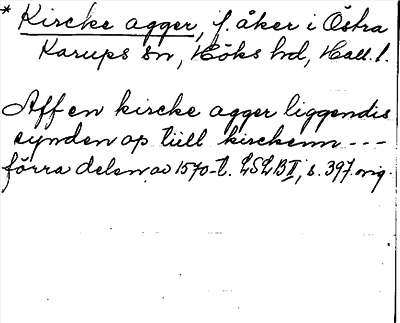 * Kircke agger, f. åker i Östra
Karups sn, Höks hd, Hall. l.
Aff en kircke agger liggendis
synden op tiill kirckenn - - -
förra delen av 1570-t. LSLB II, s. 397. orig.